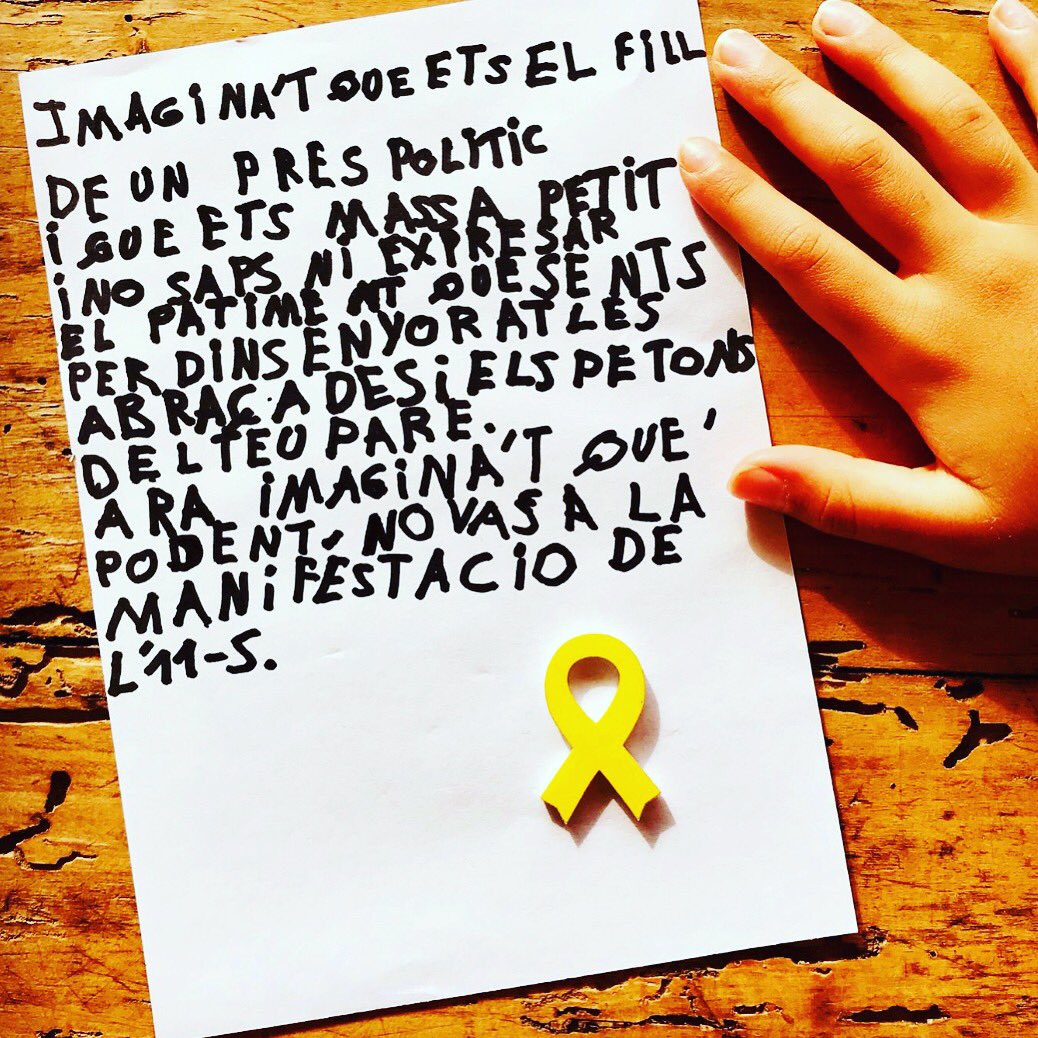 IMAGINA'T QUE ETS EL FILL
DE UN PRES POLITIC
I QUE ETS MASSA PETIT
I NO SAPS NI EXPRESAR
EL PATIMENT QUE SENTS
PER DINS ENYORAT LES
ABRAÇADES I ELS PETONS
DEL TEU PARE.
ARA IMAGINA'T QUE'
PODENT, NO VAS A LA
MANIFESTACIO DE
L'11-S.